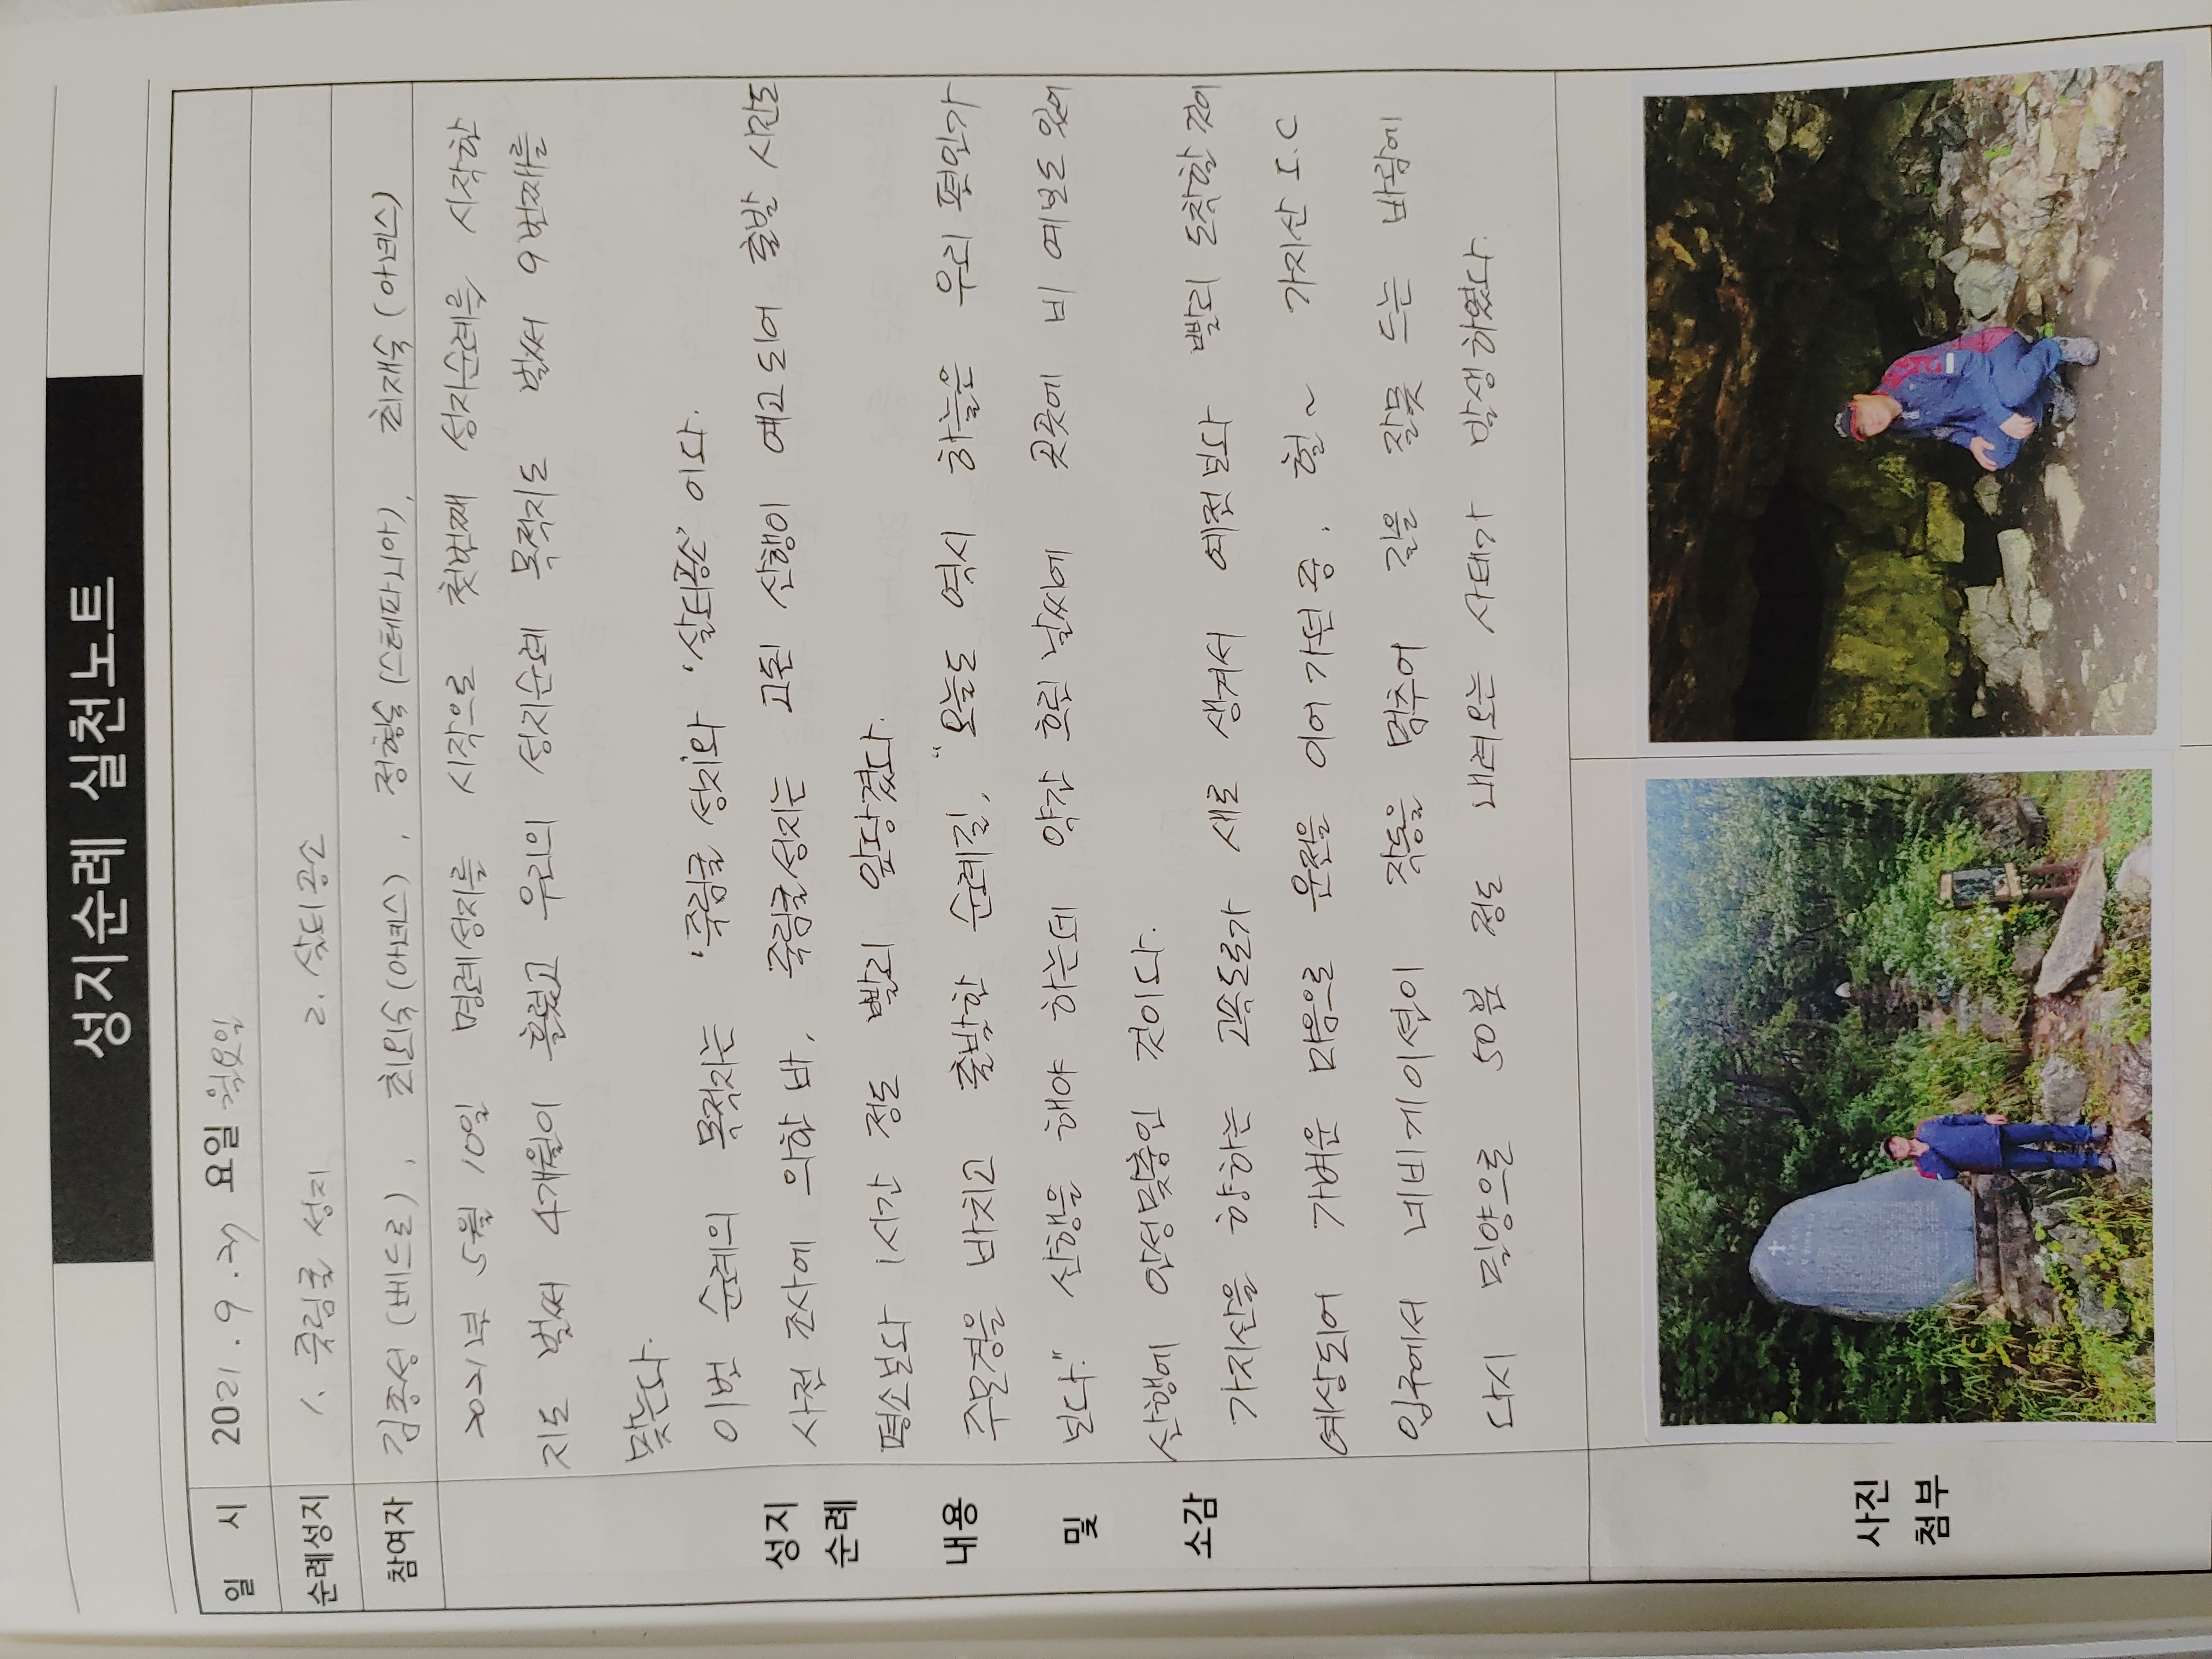 성지순례 실천노트
일 시 2021. 9. 27 요일 월요일
순례성지 1. 죽림굴 성지 2. 살티공소
참여자 김종성 (베드로), 최외숙 (아녜스), 정형숙 (스테파니아), 최재숙 (아녜스)
성지
순례
내용
및
소감
2021년 5월 10일 명례성지를 시작으로 첫번째 성지순례를 시작한
지도 벌써 4개월이 흘렀고 우리의 성지순례 목적지도 벌써 9번째를
맞는다.
이번 순례의 목적지는 '죽림굴 성지'와 '살티공소' 이다.
사전 조사에 의한 바, 죽림굴성지는 고된 산행이 예고되어 출발 시간도
평소보다 1시간 정도 빨리 앞당겼다.
주모경을 바치고 출발한 순례길, "오늘도 역시 하늘은 우리 편인가
보다." 산행을 해야 하는데 약간 흐린 날씨에 곳곳에 비 예보도 있어
산행에 안성맞춤인 것이다.
가지산을 향하는 고속도로가 새로 생겨서 예전보다 빨리 도착할 것이
예상되어 가벼운 마음으로 운전을 이어 가던 중, 헐~ 가지산 I.C
입구에서 네비게이션이 작동을 멈추어 길을 잘못 드는 바람에
다시 밀양으로 50분 정도 내려오는 사태가 발생하였다.
사진
첨부